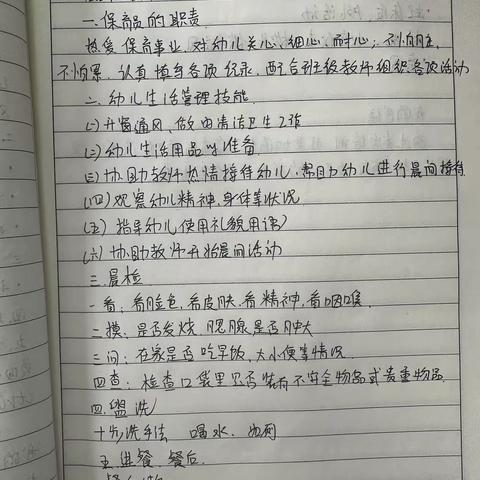 一.保育员的职责
热爱保育事业,对幼儿关心、细心、耐心;不怕脏、
不怕累,认真填写各项纪录,配合班级教师组织各项活动
二、幼儿生活管理技能
(一)开窗通风、做好清洁卫生工作
(二)幼儿生活用品准备
(三)协助教师热情接待幼儿,帮助幼儿进行晨间接待
(四)观察幼儿精神,身体等状况
(五)指导幼儿使用礼貌用语
(六)协助教师开始晨间活动
三.晨检
一看:看脸色,看皮肤,看精神,看咽喉.
二摸:是否发烧、腮腺是否肿大
三问:在家是否吃早饭,大小便等情况
四查:检查口袋里是否装有不安全物品或贵重物品
四.盥洗
七步洗手法 喝水 如厕
五.进餐、餐后